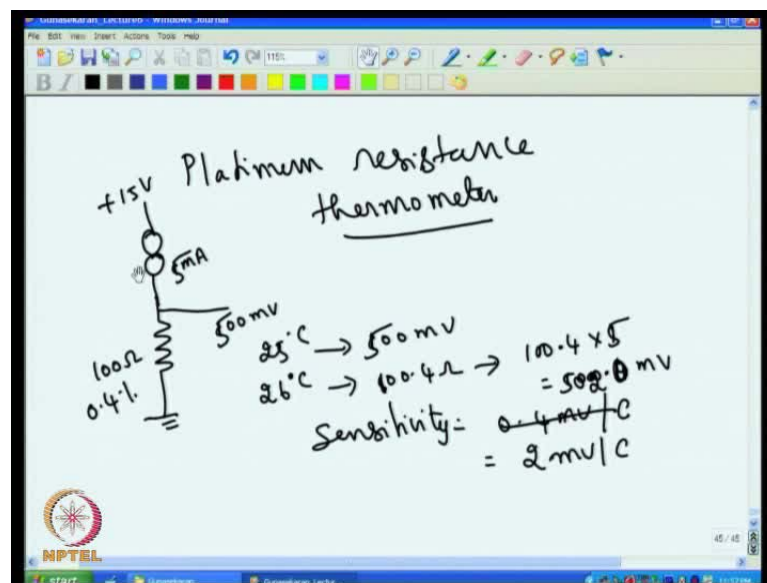 Gunasekaran_Lecture6 - Windows Journal
File Edit View Insert Actions Tools Help
115%
B I
Platinum resistance
thermometer
+15V
5mA
500mV
100Ω
0.4%
25°C → 500mV
26°C → 100.4Ω → 100.4 x 5
= 502.0 mV
Sensitivity = 0.4 mV/C
= 2mV/C
NPTEL
45/45
start
Gunasekaran
Gunasekaran_Lectu...